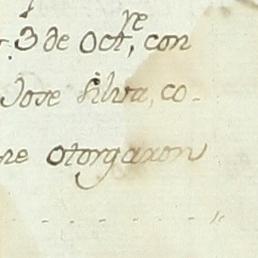 3 de Oct.re, con
Jose Silva, co-
ne otorgaron